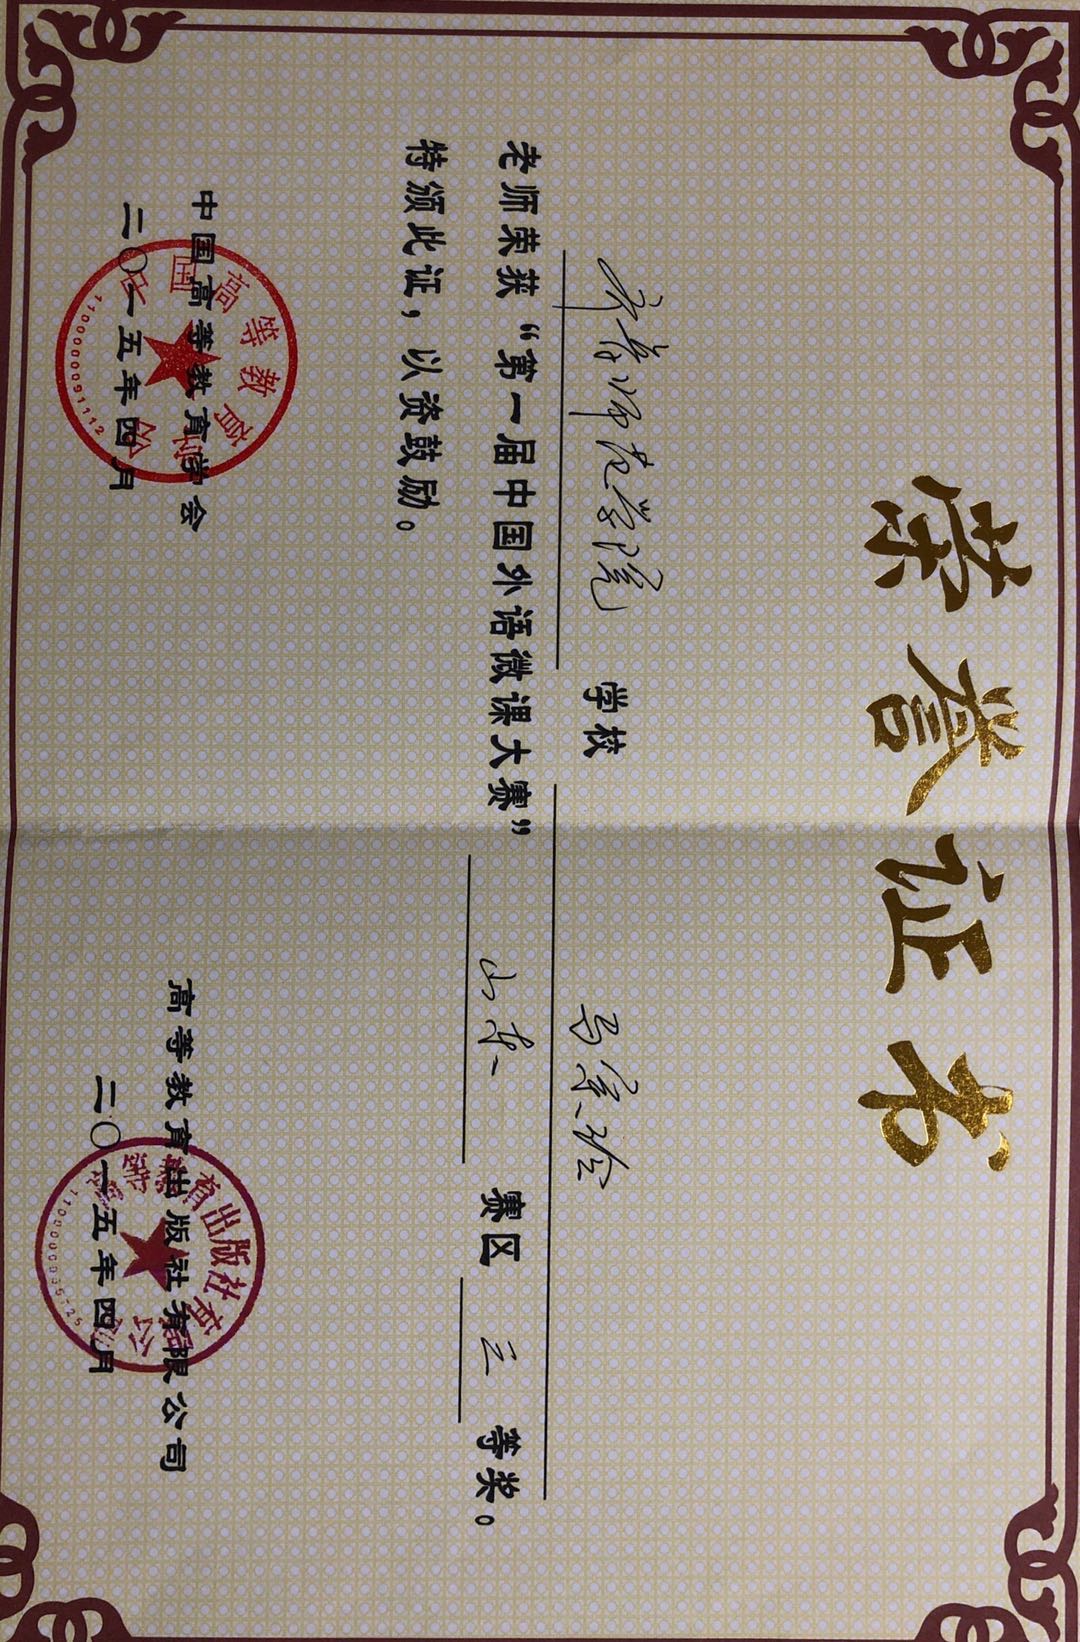 荣誉证书
齐鲁师范学院 学校 马景玲
老师荣获“第一届中国外语微课大赛” 山东 赛区 三 等奖。
特颁此证，以资鼓励。
中国高等教育学会
二〇一五年四月
高等教育出版社有限公司
二〇一五年四月
中国高等教育学会
高等教育出版社有限公司